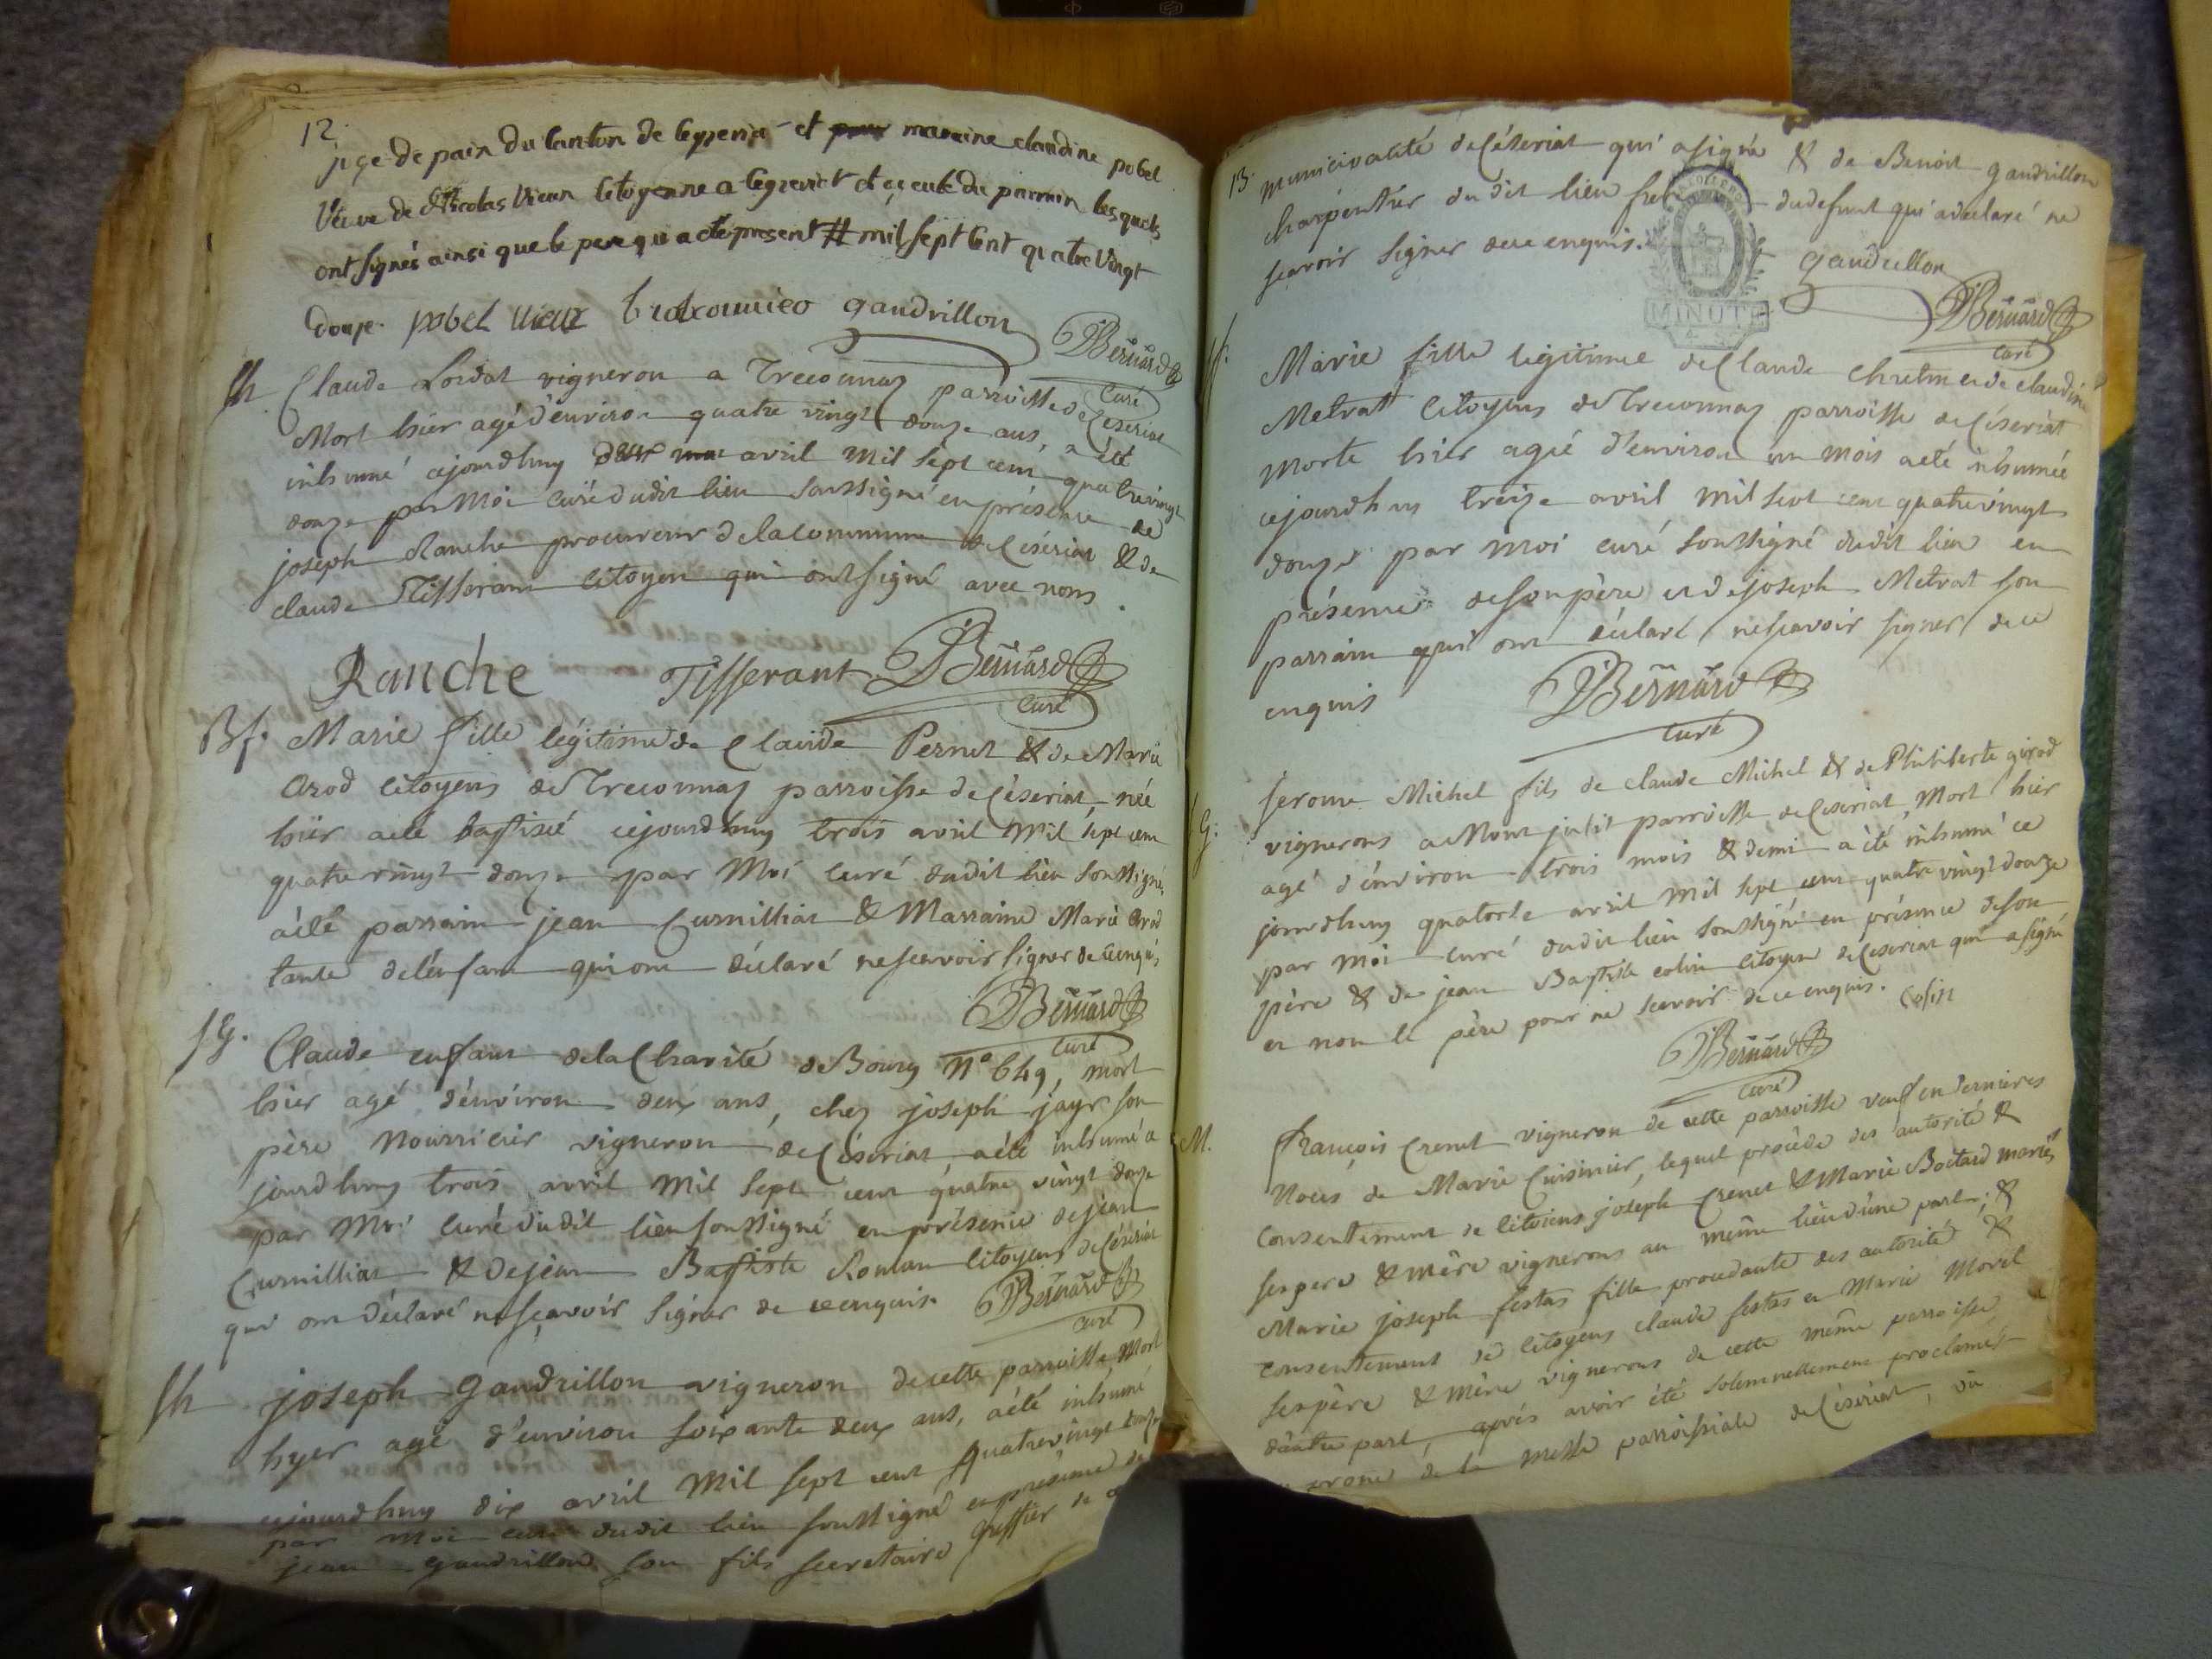 12.
juge de paix du Canton de Ceyzeria et pour maraine claudine pobel
Veuve de Nicolas Vieux Citoyenne a Ceyzeriat et ayeule du parrain lesquels
ont signés ainsi que le pere qui a été present # mil sept Cent quatre Vingt
douze. pobel vieux gaudrillon DBernard
Curé
Sh. Claude Loidat vigneron a Treconnaz parroisse de Céseriat
Mort hier agé d'environ quatre vingt douze ans, a été
inhumé cejourdhuy deux avril Mil sept cent quatrevingt
douze par Moi curé dudit lieu soussigné en présence de
joseph Ranche procureur de la commune de Céseriat & de
claude Tisserant citoyen qui ont signé avec nous.
Ranche Tisserant DBernard
Curé
Bf. Marie fille légitime de Claude Pernet & de Marie
Arod citoyens de Treconnaz parroisse de Céseriat née
hier a été baptisée cejourdhuy trois avril Mil sept cent
quatrevingt douze par Moi curé dudit lieu soussigné,
a été parrain jean Curnilliat & Marraine Marie Arod
tante de l'enfant qui ont déclaré ne scavoir signer de ce enquis,
DBernard
Curé
Sg. Claude enfant de la Charité de Bourg n° 649, mort
hier agé d'environ deux ans, chez joseph jayr son
père Nourricier vigneron de Céseriat, a été inhumé a
jourdhuy trois avril Mil sept cent quatre vingt douze
par Moi curé dudit lieu soussigné en présence de jean
Curnilliat & de jean Baptiste Roulan citoyens de Céseriat
qui ont déclaré ne sçavoir signer de ce enquis. DBernard
Curé
Sh joseph gaudrillon vigneron de cette parroisse Mort
hyer agé d'environ soixante deux ans, a été inhumé
cejourdhuy dix avril Mil sept cent quatrevingt douze
par Moi curé dudit lieu soussigné en présence de
jean gaudrillon son fils secretaire greffier de
13. municipalité de Céseriat qui a signé & de Benoit gaudrillon
charpentier dudit lieu frere du defunt qui a declaré ne
scavoir signer de ce enquis.
gaudrillon
MINUTE
DBernard
Curé
Sf. Marie fille legitime de Claude Chretin et de claudine
Metrat Citoyens de Treconnaz parroisse de Céseriat
morte hier agée d'environ un mois a été inhumée
cejourdhuy treize avril Mil sept cent quatrevingt
douze par Moi curé soussigné dudit lieu en
présence de son père et de joseph Metrat son
parrain qui ont déclaré ne scavoir signer de ce
enquis DBernard
Curé
Sg. Jerome Michel fils de claude Michel & de Philiberte girod
vignerons a Mont juli parroisse de Ceseriat, Mort hier
agé d'environ trois mois & demi a été inhumé ce
jourdhuy quatorze avril Mil sept cent quatre vingt douze
par Moi curé dudit lieu soussigné en présence de son
père & de jean Baptiste colin citoyen de Ceseriat qui a signé
et non le père pour ne scavoir de ce enquis. Colin
DBernard
Curé
M. François Crenet vigneron de cette parroisse veuf en dernieres
Noces de Marie Cuisinier, lequel procède des autorité &
Consentement de Citoiens joseph Crenet & Marie Boitard mariés
ses pere & mère vignerons au même lieu d'une part, &
Marie joseph festas fille procedante des autorité &
consentement de Citoyens claude festas et Marie Morel
ses père & mère vignerons de cette même parroisse,
d'autre part, après avoir été solemnellement proclamés
prone de la messe parroissiale de Céseriat,